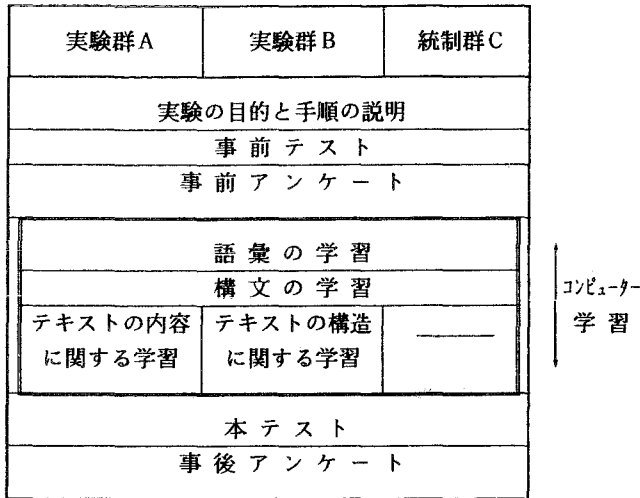 実験群A 実験群B 統制群C
実験の目的と手順の説明
事前テスト
事前アンケート
語彙の学習
構文の学習
テキストの内容に関する学習
テキストの構造に関する学習
コンピューター
学習
本テスト
事後アンケート